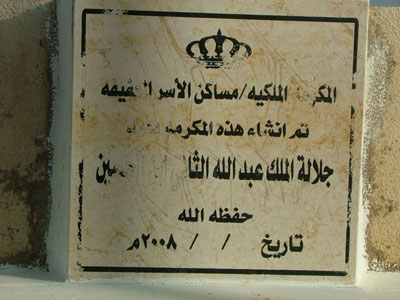 المكرمة الملكيه/مساكن الأسر العفيفه
تم انشاء هذه المكرمه
جلالة الملك عبدالله الثاني ابن الحسين
حفظه الله
تاريخ / / ٢٠٠٨م